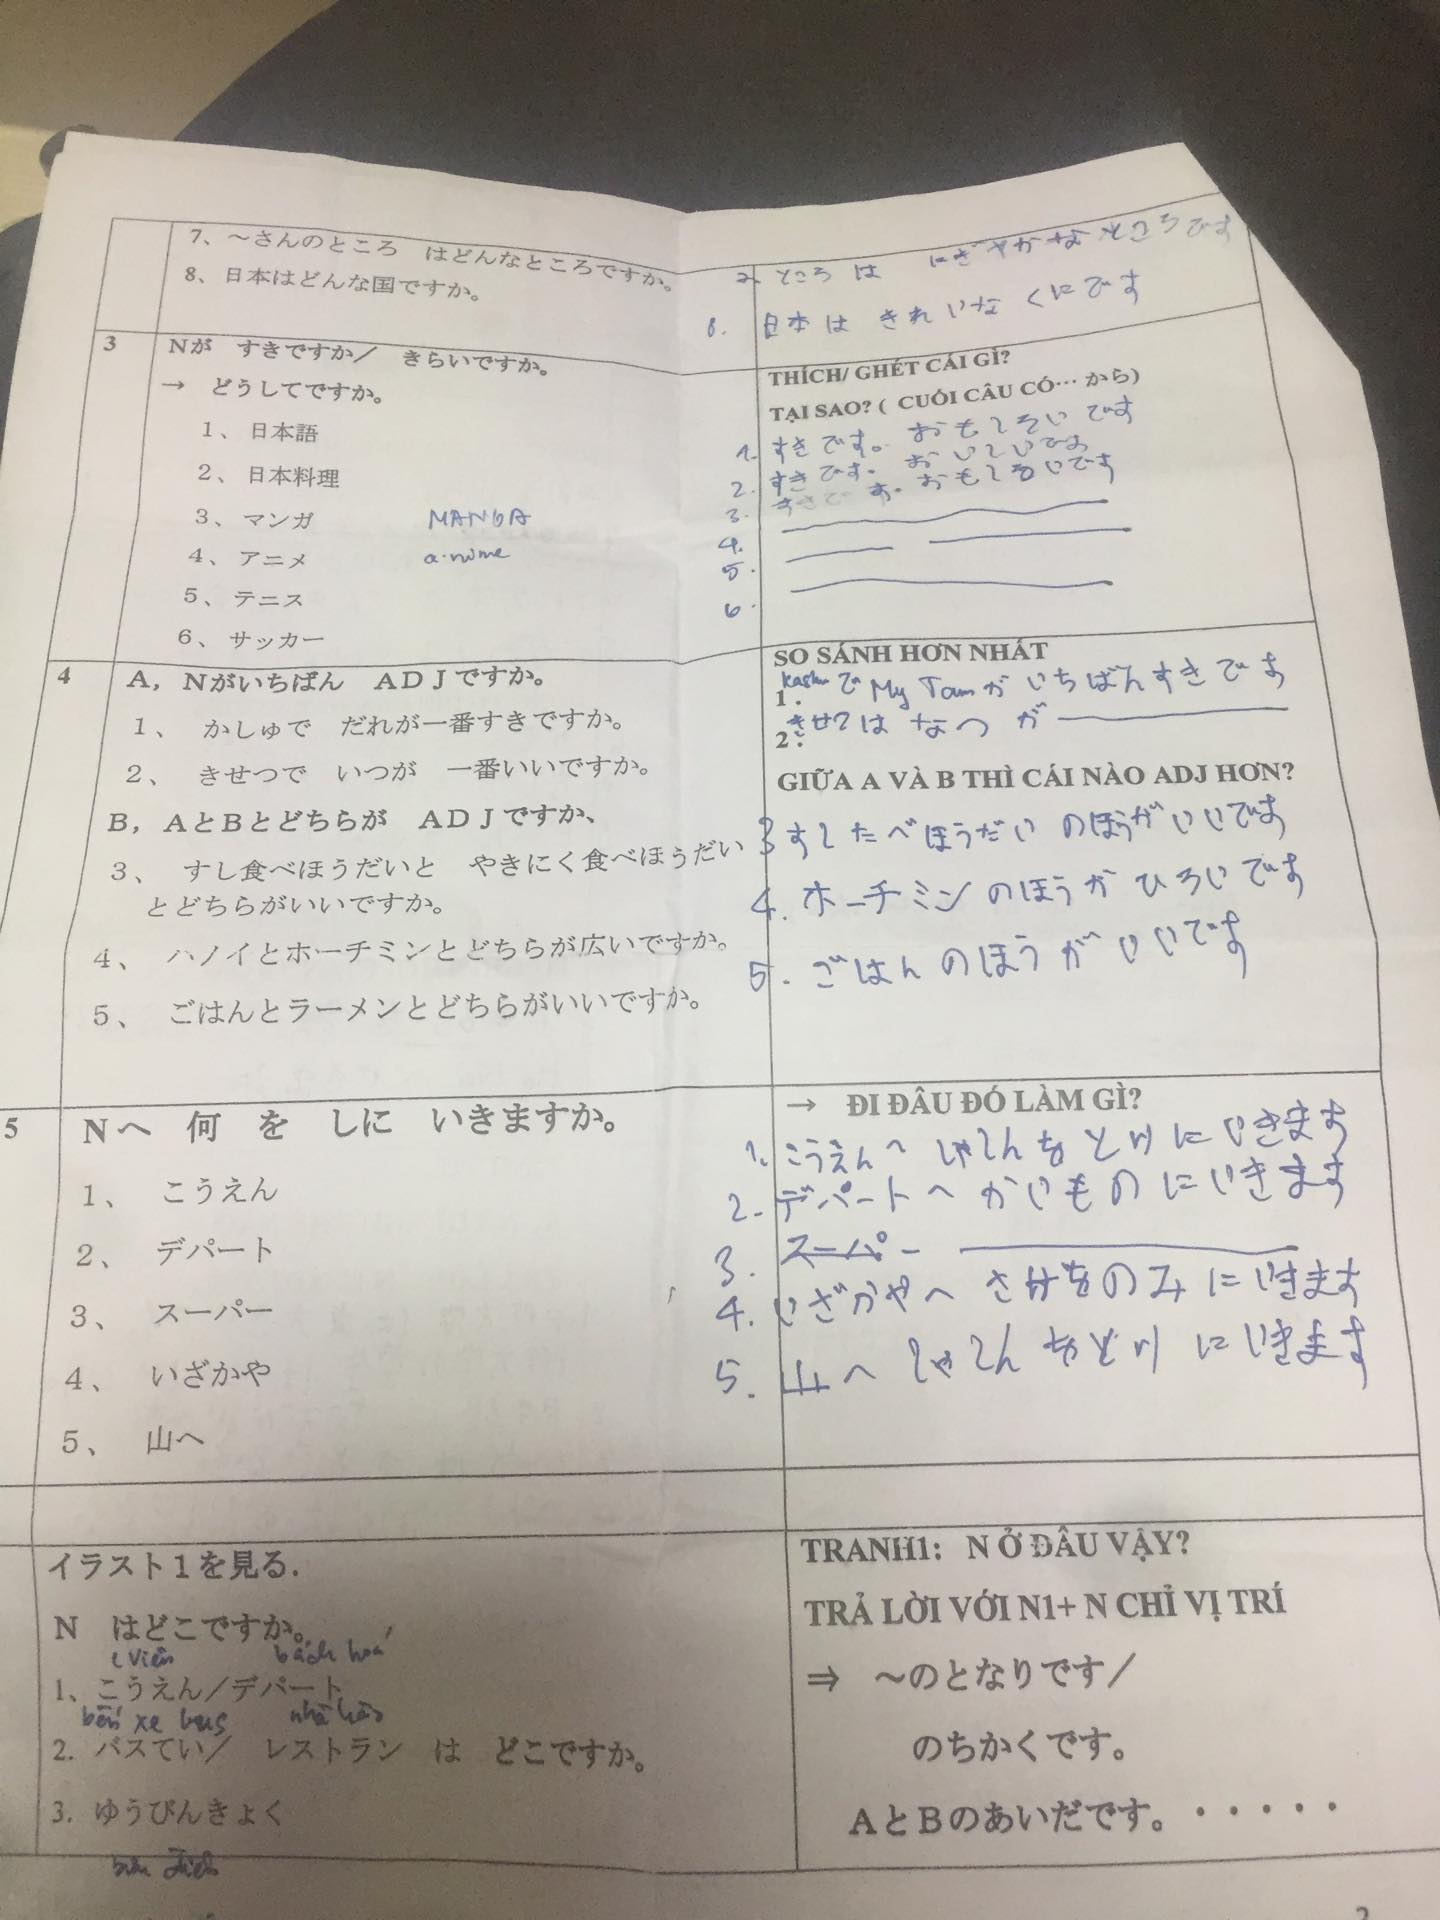 7、～さんのところ　はどんなところですか。
8、日本はどんな国ですか。
ところ は にぎやかな ところです
8. 日本 は きれいな くにです
3
Nが　すきですか／　きらいですか。
→　どうしてですか。
1、日本語
2、日本料理
3、マンガ MANGA
4、アニメ a-nime
5、テニス
6、サッカー
THÍCH/ GHÉT CÁI GÌ?
TẠI SAO? ( CUỐI CÂU CÓ… から)
1. すきです。 おもしろい です
2. すきです. おいしいです
3. すきです. おもしろいです
4.
5.
6.
4
A，Nがいちばん　ADJですか。
1、　かしゅで　だれが一番すきですか。
2、　きせつで　いつが　一番いいですか。
B，AとBとどちらが　ADJですか、
3、　すし食べほうだいと　やきにく食べほうだい
とどちらがいいですか。
4、　ハノイとホーチミンとどちらが広いですか。
5、　ごはんとラーメンとどちらがいいですか。
SO SÁNH HƠN NHẤT
1. で My Tam が いちばんすきです
2. は なつ が
GIỮA A VÀ B THÌ CÁI NÀO ADJ HƠN?
3 すしたべほうだい のほうがいいです
4. ホーチミン のほうが ひろいです
5. ごはん のほうが いいです
5
Nへ　何　を　しに　いきますか。
1、　こうえん
2、　デパート
3、　スーパー
4、　いざかや
5、　山へ
→　ĐI ĐÂU ĐÓ LÀM GÌ?
1. こうえんへ しゃしんをとりにいきます
2. デパートへ かいもの にいきます
3. スーパー
4. いざかやへ さけをのみ にいきます
5. 山へ しゃしん をとり にいきます
イラスト1を見る.
N　はどこですか。
c viên bách hoá
1、こうえん／デパート
bến xe bus nhà hàng
2. バスてい／　レストラン　は　どこですか。
3. ゆうびんきょく
bưu điện
TRANH1:　N Ở ĐÂU VẬY?
TRẢ LỜI VỚI N1+ N CHỈ VỊ TRÍ
⇒　～のとなりです／
のちかくです。
AとBのあいだです。・・・・・
2